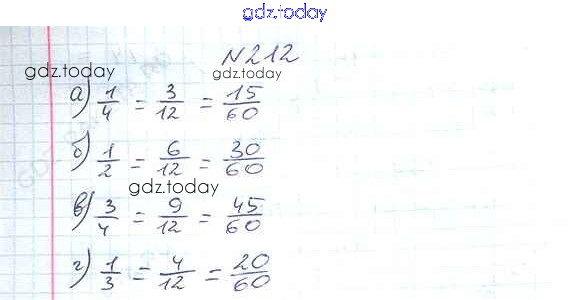 gdz.today
№212
gdz.today
а) 1/4 = 3/12 = 15/60
б) 1/2 = 6/12 = 30/60
gdz.today
в) 3/4 = 9/12 = 45/60
г) 1/3 = 4/12 = 20/60